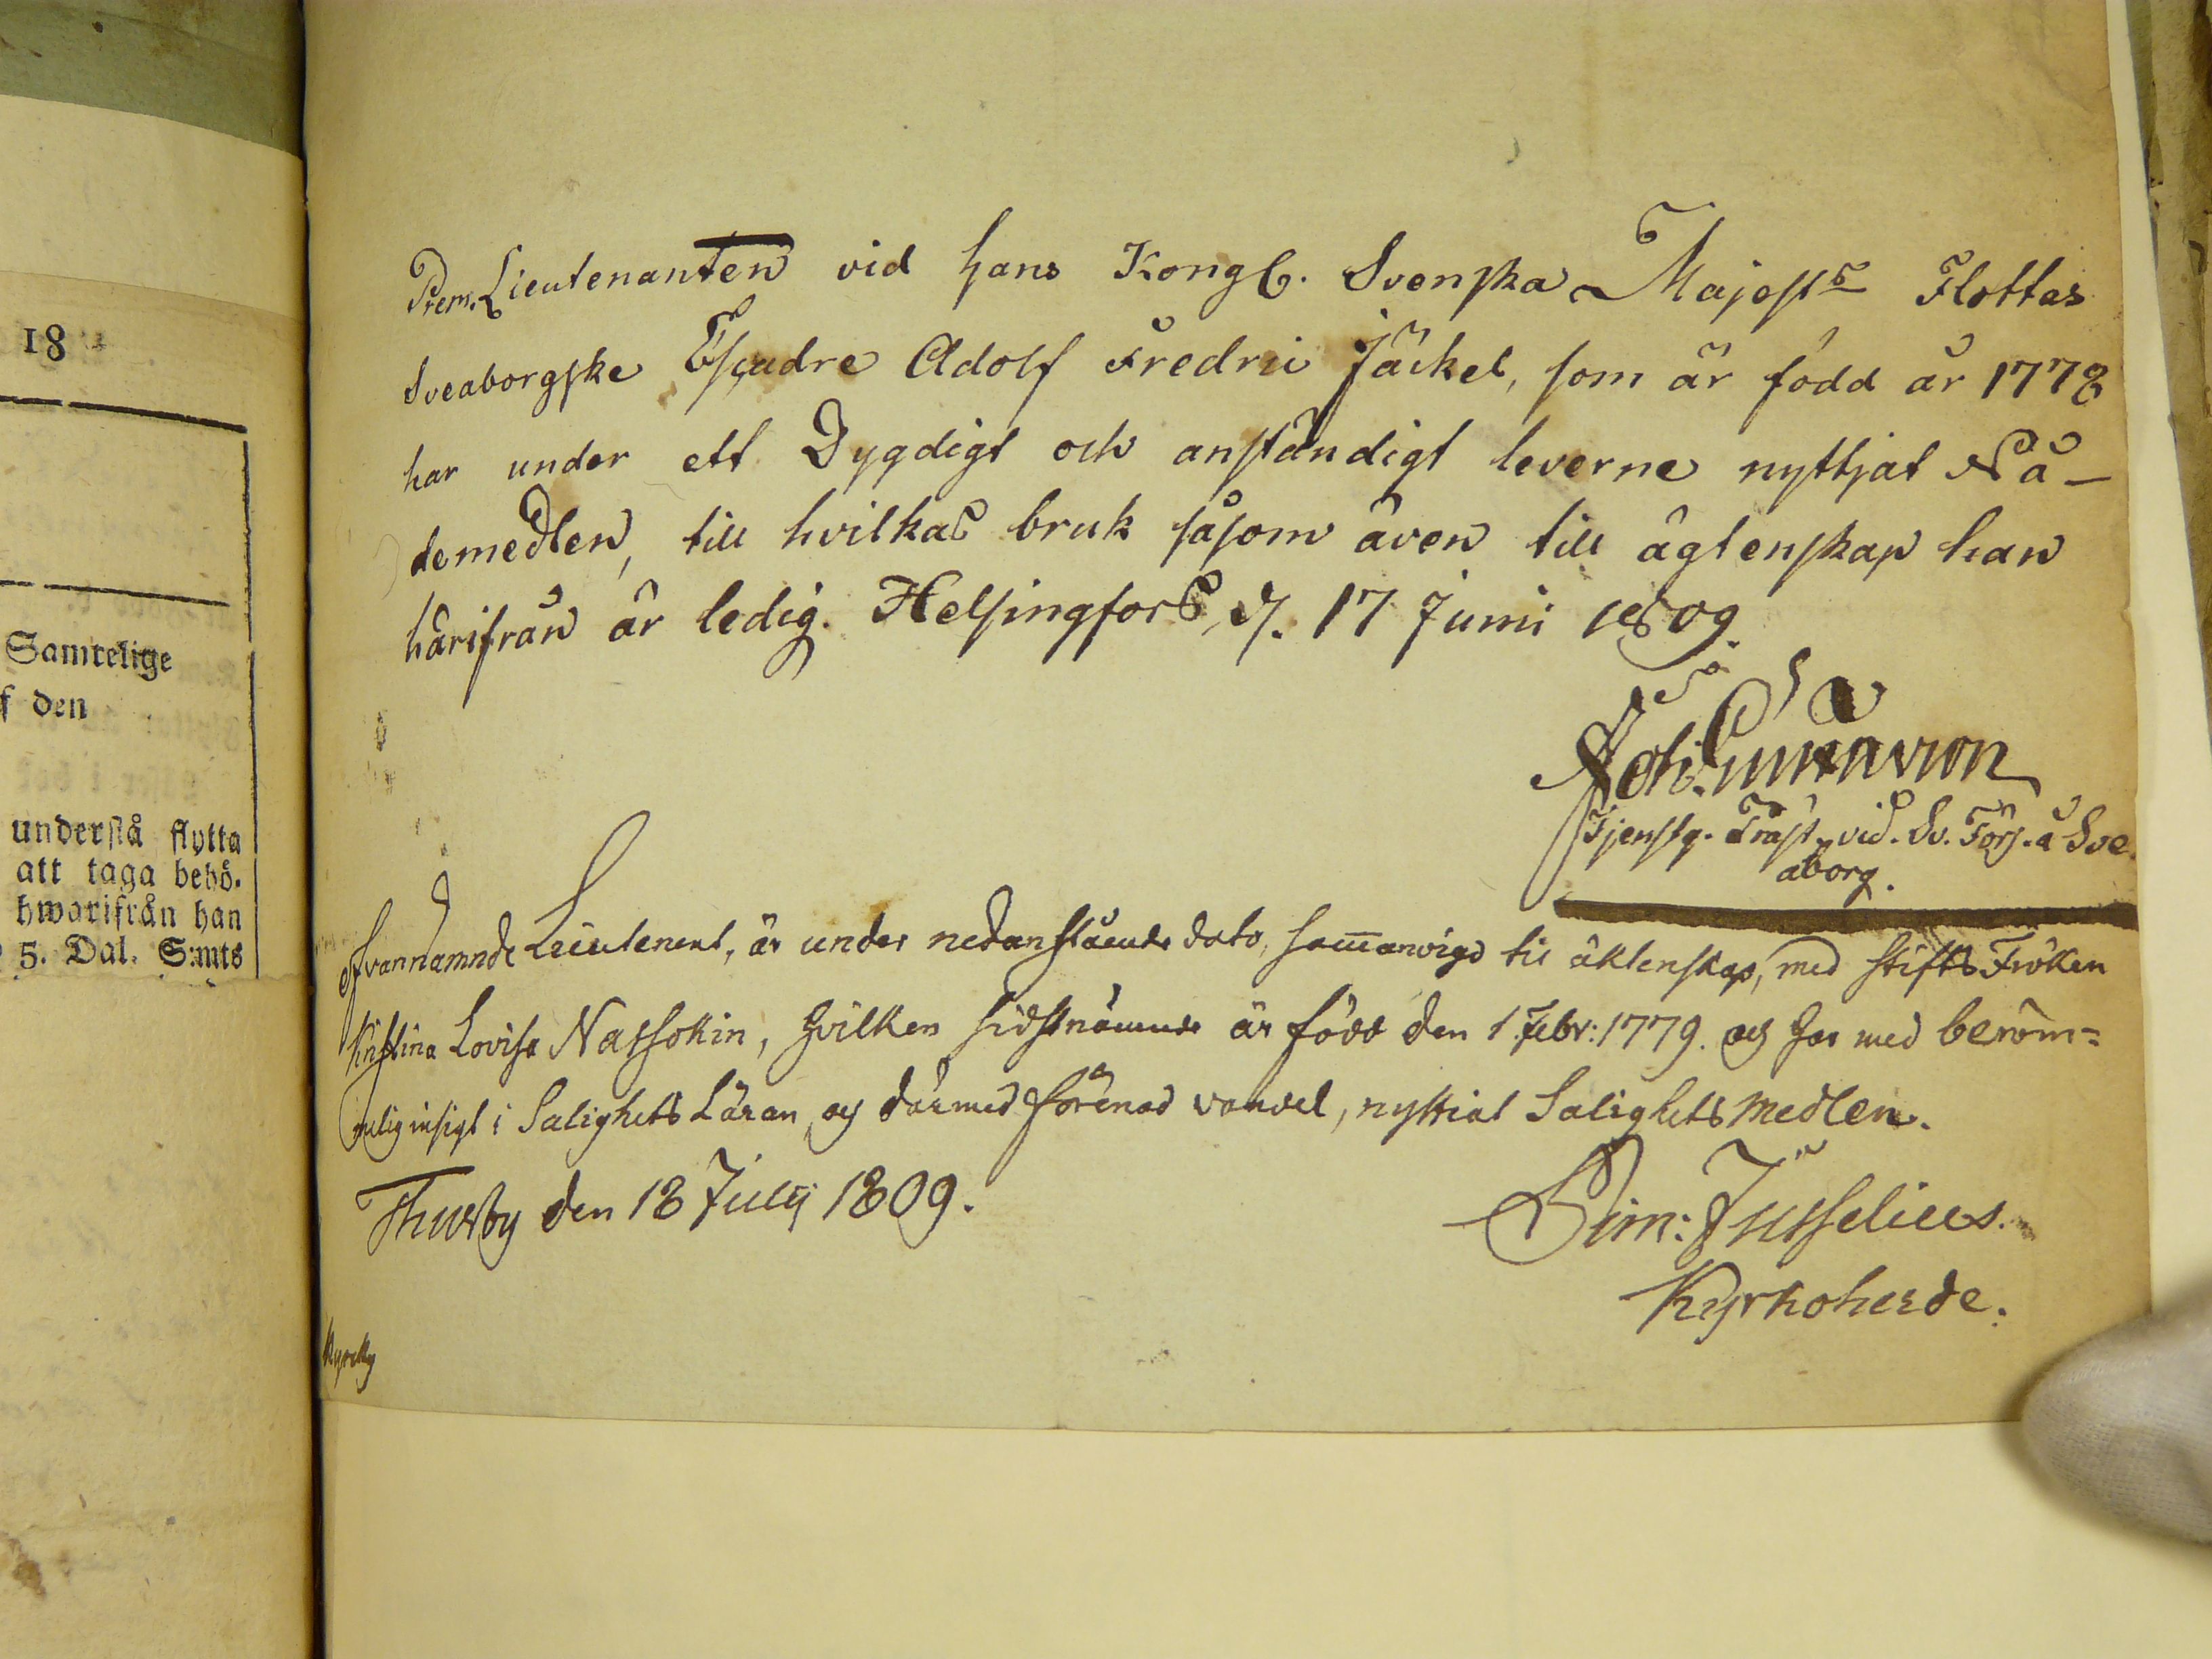 18
Samtelige
f den
understå flytta
att taga behö.
hwarifrån han
5. Dal. S:mts
Prem. Lieutenanten vid hans Kongl. Svenska Majest:s Flottas
Sveaborgske Escadre Adolf Fredric Jäckel, som är född år 1778
har under ett Dygdigt och anständigt leverne nyttjat Nå-
demedlen, till hvilkas bruk såsom även till ägtenskap han
härifrån är ledig. Helsingfors, d. 17 Junii 1809.
Joh.
Tjenstg. Präst vid Sv. Förs. å Sve
aborg.
Ofvannamnde Lieutenent, är under nedanstående dato, sammanvigd til äktenskap, med StiftsFröken
Kristina Lovisa Nassokin, hvilken sidstnämnde är född den 1 Febr: 1779. og har med beröm=
melig insigt i Salighets Läran, og därmed förenad vandel, nyttiat Salighets medlen.
Thusby den 18 Julij 1809.
Sim: Jusselius.
Kyrkoherde.